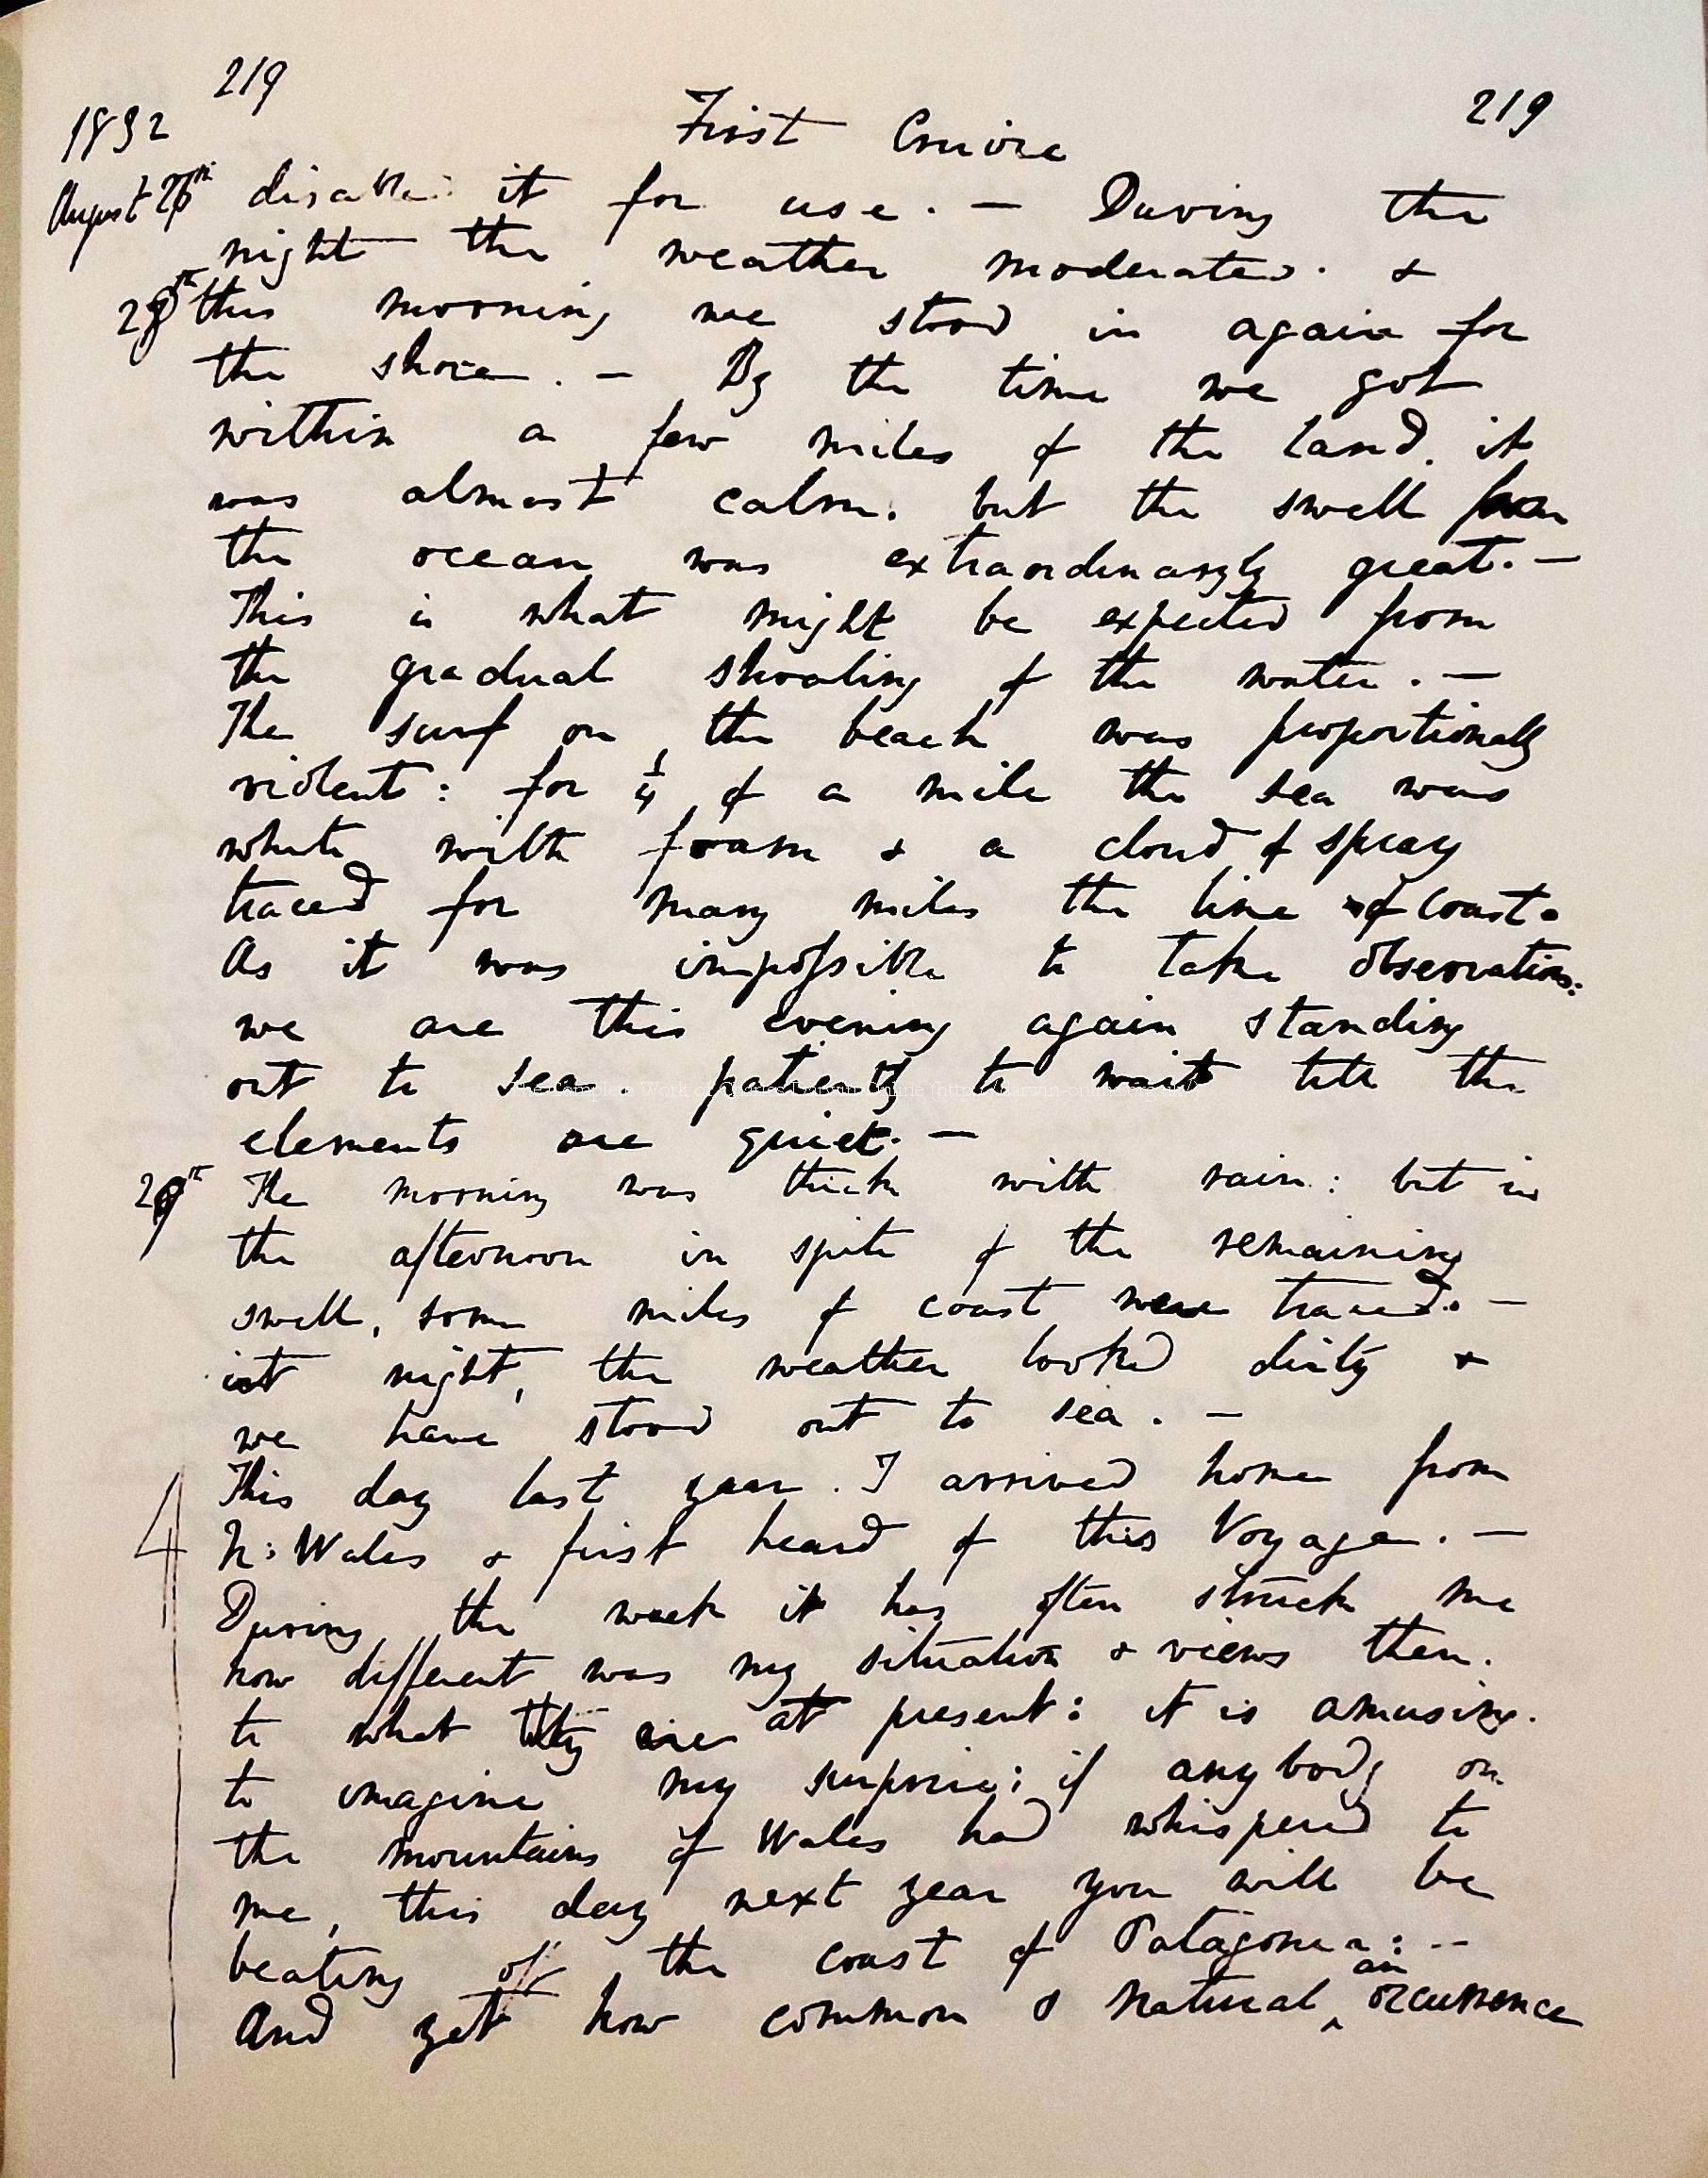 219
1832 First Cruise 219
August 26th disable it for use. — During the
night the weather moderated. &
28th this morning we stood in again for
the shore. — By the time we got
within a few miles of the land, it
was almost calm. but the swell from
the ocean was extraordinaryly great. —
This is what might be expected from
the gradual shoaling of the water. —
The surf on the beach was proportionally
violent: for 1/4 of a mile the sea was
white with foam & a cloud of spray
traced for many miles the line of coast.
As it was impossible to take observations:
we are this evening again standing
out to sea patiently to wait till the
elements are quiet. —
29th The morning was thick with rain: but in
the afternoon in spite of the remaining
swell, some miles of coast were traced. —
at night, the weather looked dirty &
we have stood out to sea. —
This day last year. I arrived home from
N: Wales & first heard of this Voyage. —
During the week it has often struck me
how different was my situation & views then.
to what they are at present: it is amusing.
to imagine my surprise; if anybody on
the mountains of Wales had whispered to
me, this day next year you will be
beating off the coast of Patagonia: —
And yet how common & natural ^an occurrence